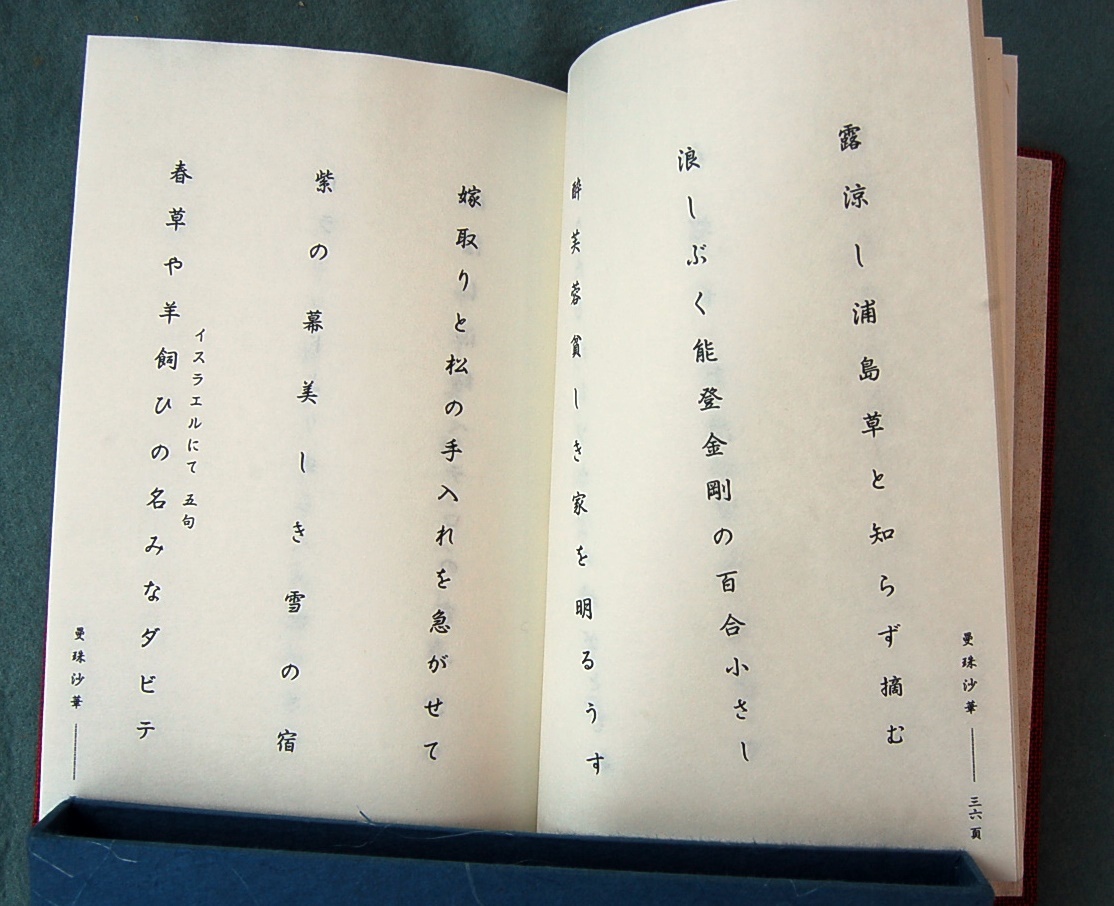 露涼し浦島草と知らず摘む
浪しぶく能登金剛の百合小さし
酔芙蓉貧しき家を明るうす
曼珠沙華
三六頁
嫁取りと松の手入れを急がせて
紫の幕美しき雪の宿
イスラエルにて 五句
春草や羊飼ひの名みなダビテ
曼珠沙華